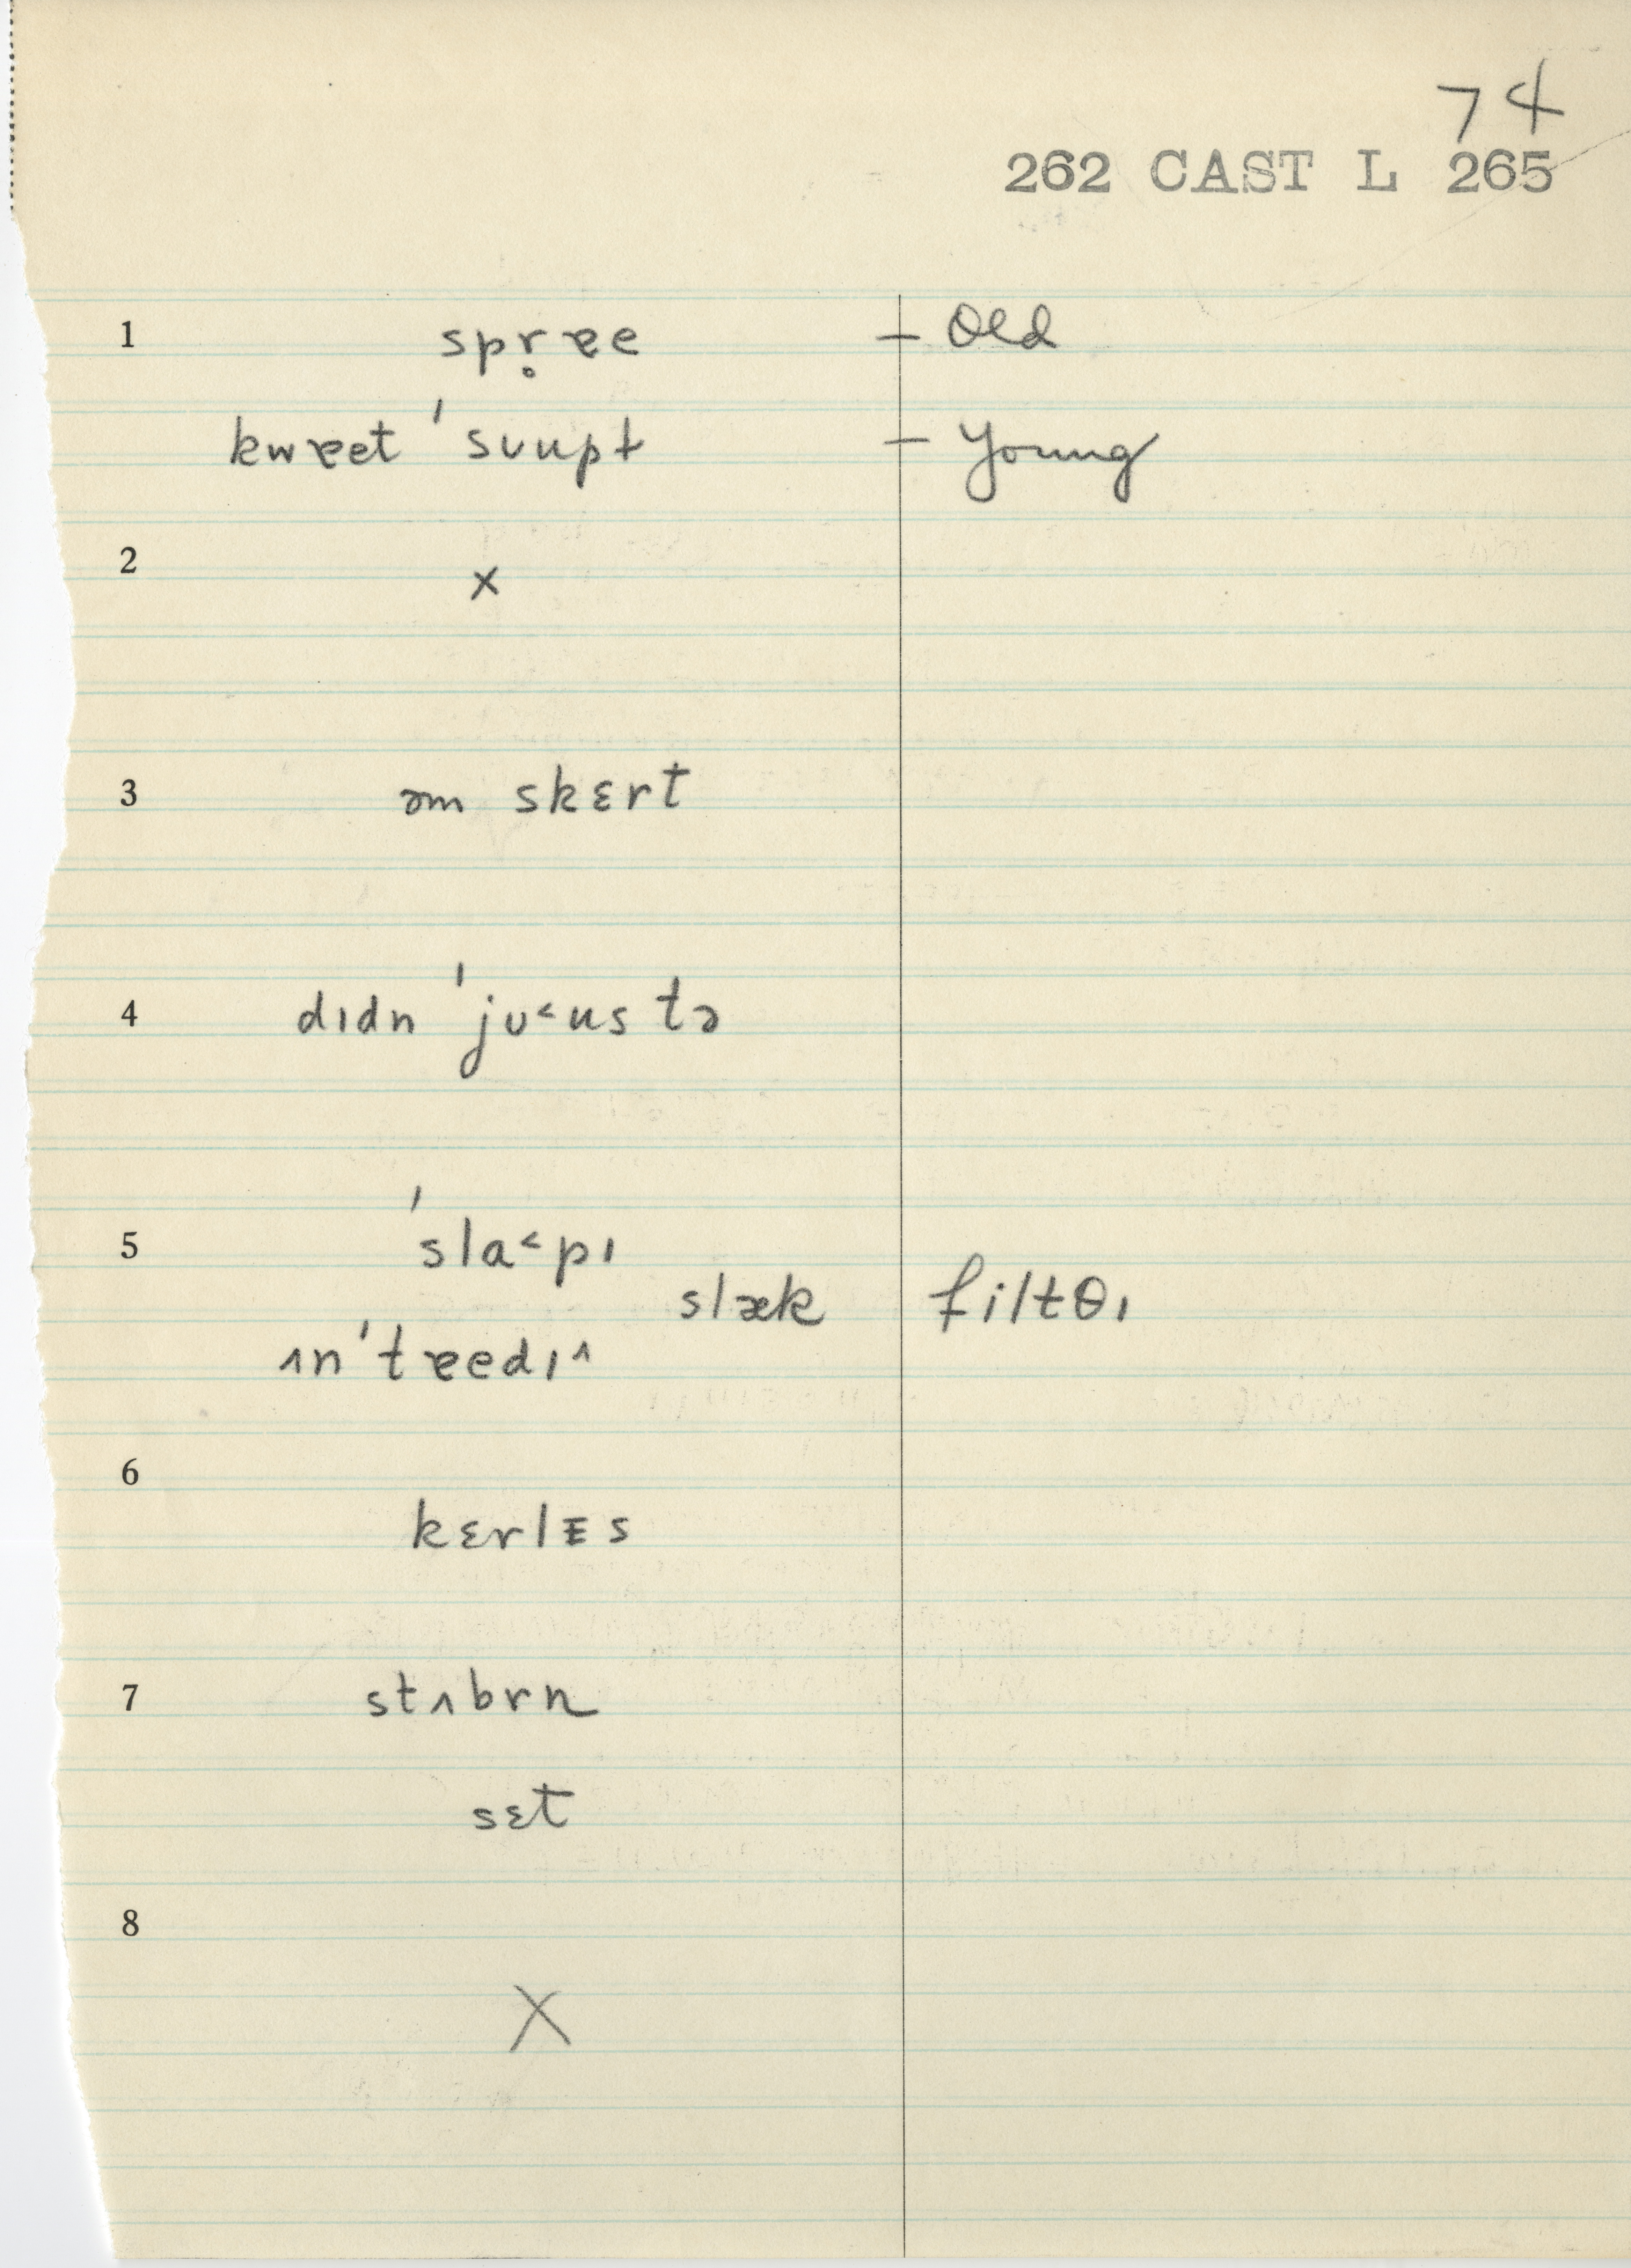 74
262 CAST L 265
1 spr̥ɐe – Old
kwɐet 'sʋupt – Young
2 x
3 əm skɛrt
4 dɪdn 'jʋ˂us tə
5 'sla˂pɪ
slæk filtθɪ
ɪn'tɐedɪ^
6 kɛrlᵻs
7 stʌbrn
sɛt
8 X